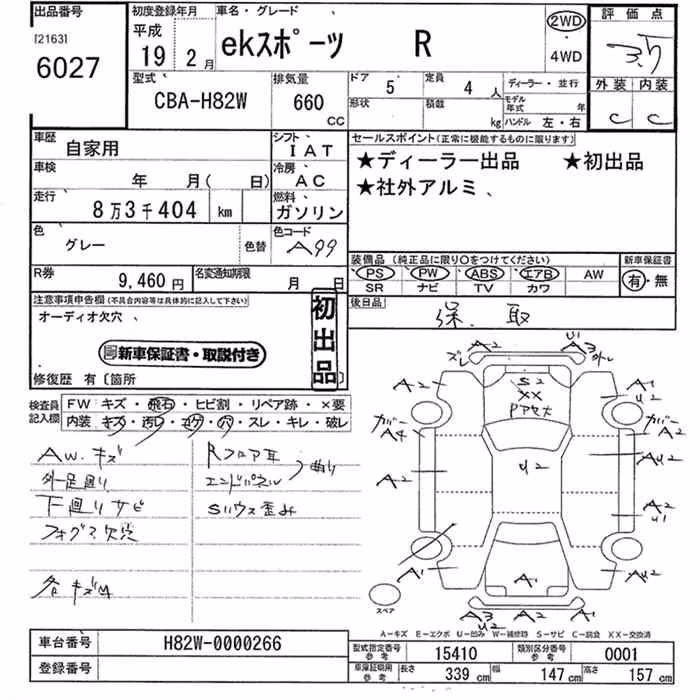 出品番号
[2163]
6027
初度登録年月
平成
19 2月
車名・グレード
ekスポーツ R
2WD
・
4WD
評価点
3.5
外装 内装
C C
型式
CBA-H82W
排気量
660
CC
ドア 5
定員 4人
ディーラー・並行
形状
積載 kg
モデル年式 年
ハンドル 左・右
車歴
自家用
シフト
IAT
車検
年 月( 日)
冷房
AC
走行
8万3千404 km
燃料
ガソリン
色
グレー
色替
色コード
A99
R券
9,460円
名変通知期限
月 日
セールスポイント(正常に機能するものに限ります)
★ディーラー出品 ★初出品
★社外アルミ、
装備品(純正品に限り○をつけてください)
PS PW ABS エアB AW
SR ナビ TV カワ
新車保証書
有・無
後日品
保、取
注意事項申告欄(不具合内容等は具体的に記入して下さい)
オーディオ欠穴、
新車保証書・取説付き
初出品
修復歴 有〔箇所
検査員記入欄
FW キズ・飛石・ヒビ割・リペア跡・×要
内装 キズ・汚レ・コゲ・穴・スレ・キレ・破レ
AW.キズ
外足廻り
下廻りサビ
フォグマ欠穴
各キズM
Rフロア耳
エンドパネル 曲り
Sハウス歪み
ズレ A2 U1 A3 外レ
A2 S2 A1
XX U2
カバー カバー
A4 A2
U2 AU2
A2
A2
U1
A1 A1 AU2
スペア
A3 A2 A2
U2
A-キズ E-エクボ U-凹み W-補修跡 S-サビ C-腐食 XX-交換済
車台番号
H82W-0000266
登録番号
型式指定番号 参考
15410
類別区分番号 参考
0001
車庫証明用 参考
長さ 339 cm
幅 147 cm
高さ 157 cm